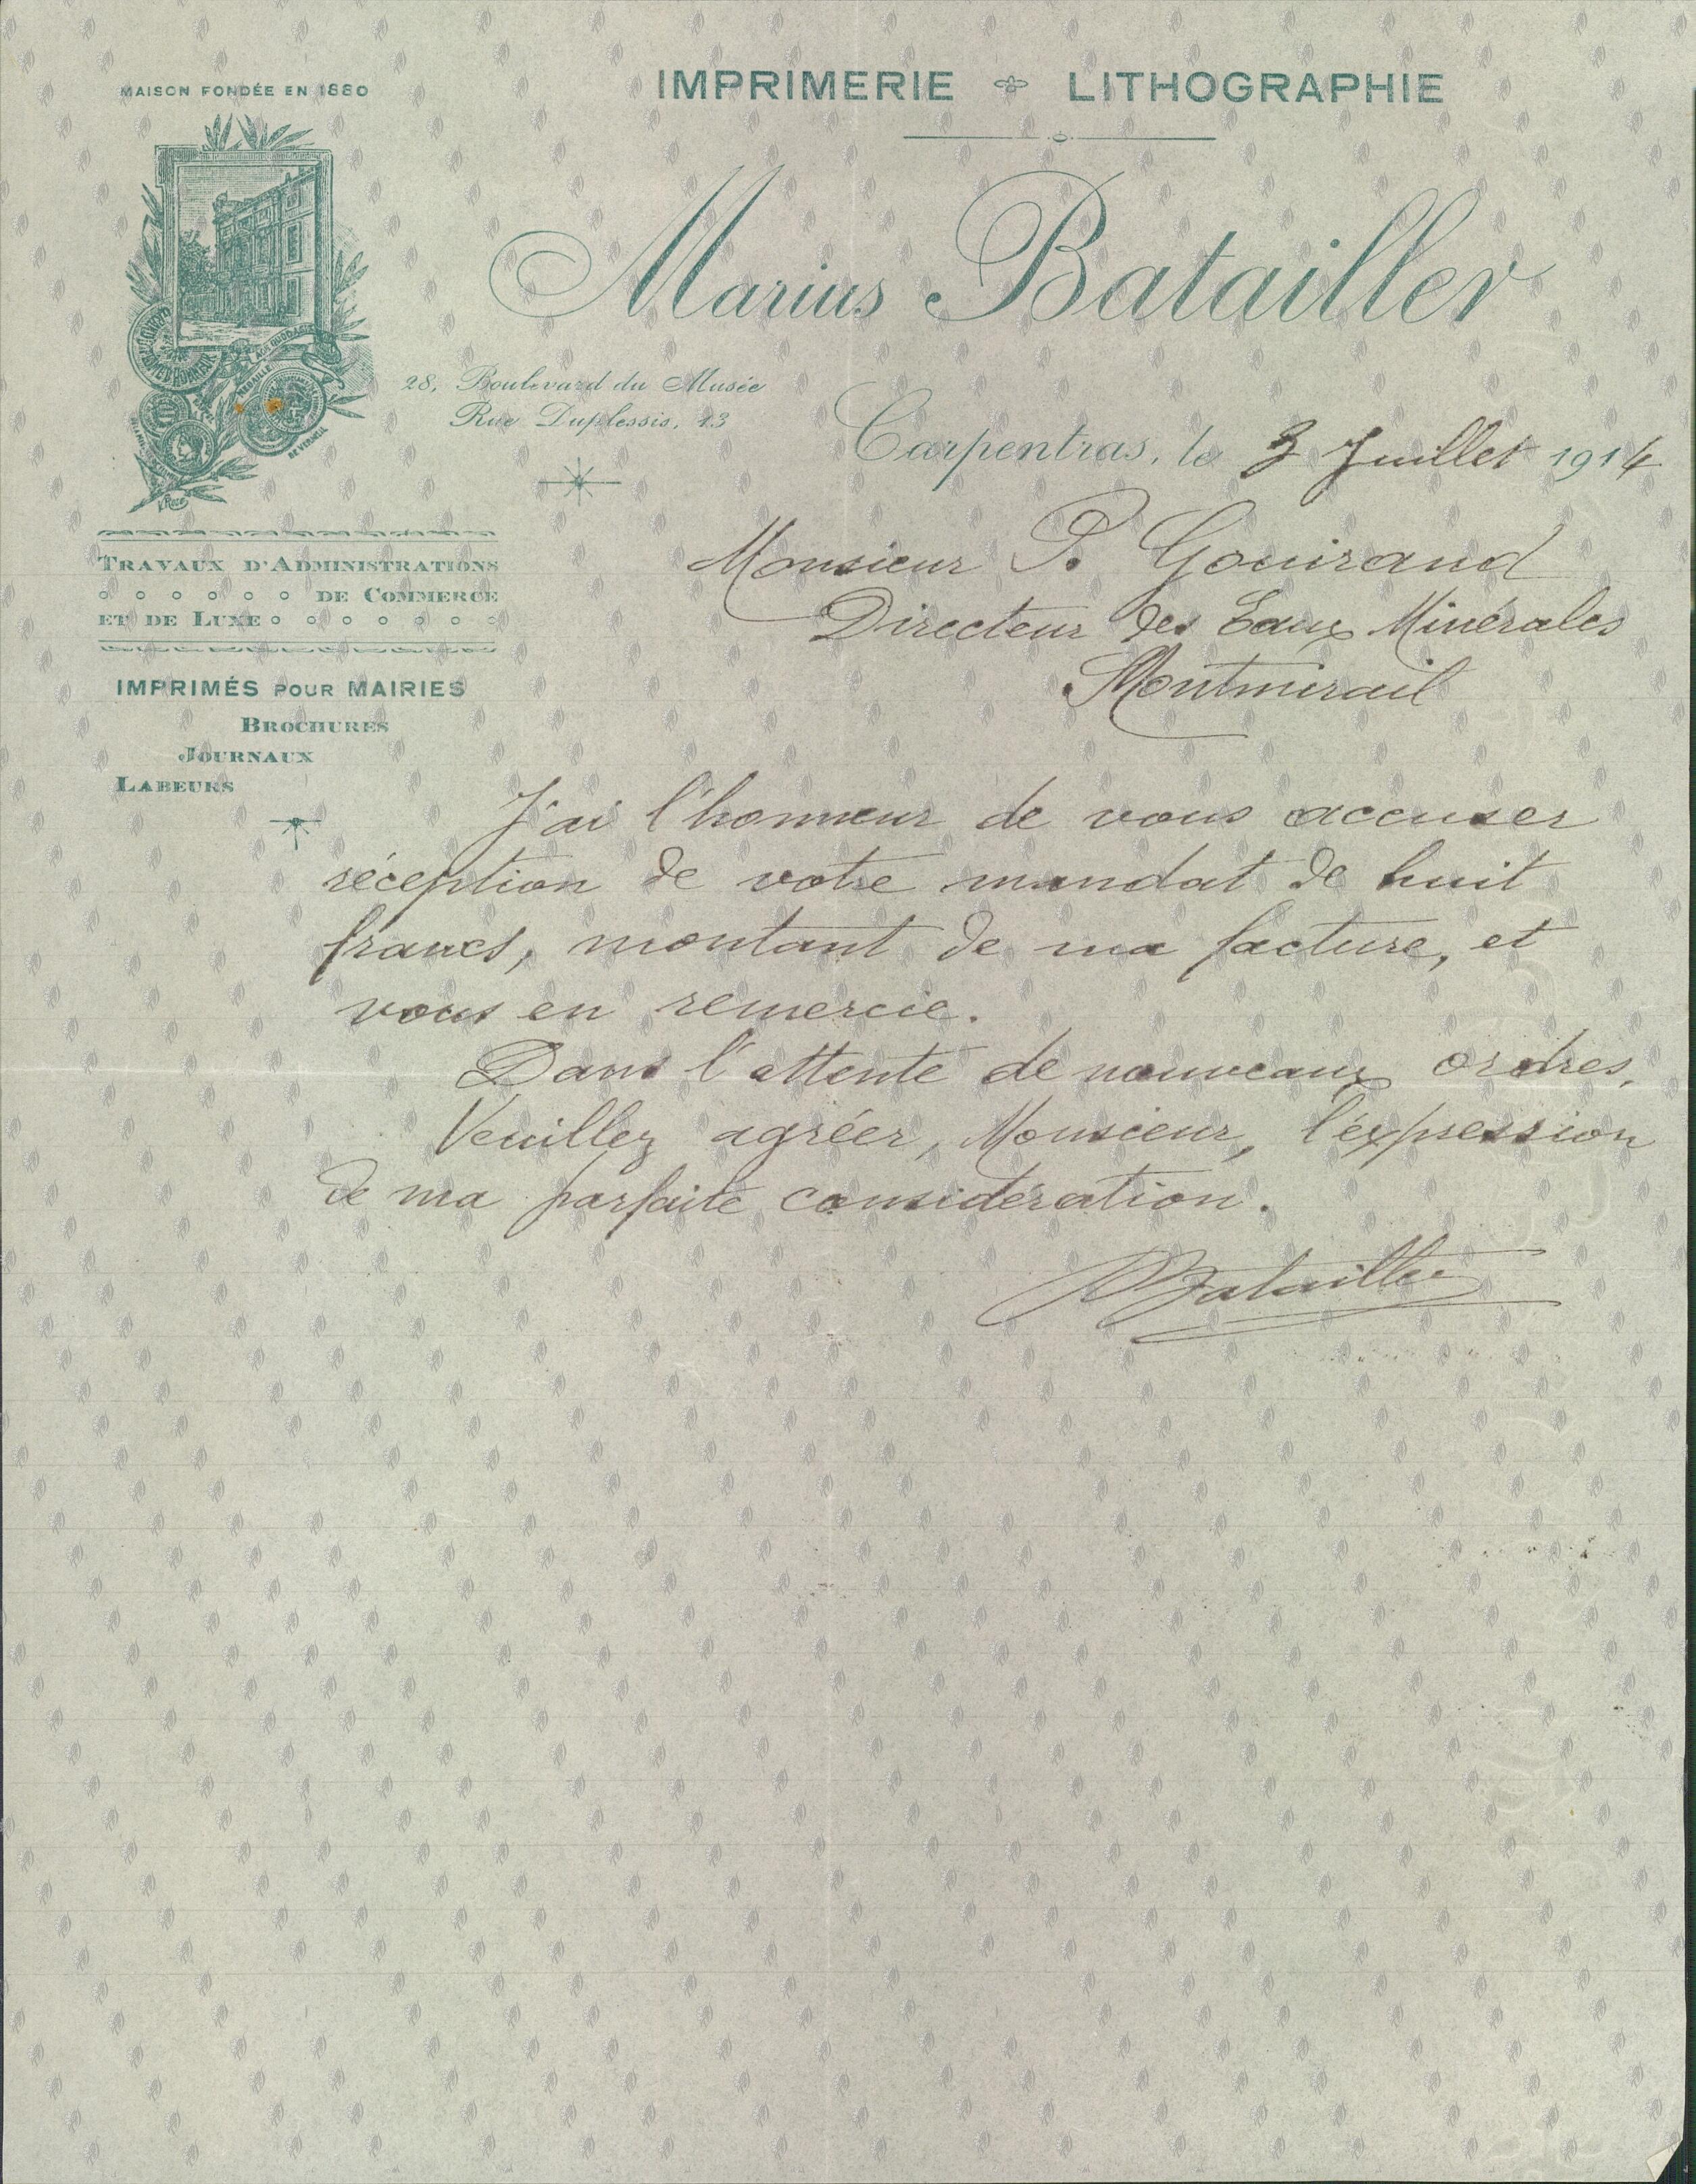 MAISON FONDÉE EN 1880
IMPRIMERIE LITHOGRAPHIE
Marius Batailler
28, Boulevard du Musée
Rue Duplessis, 13
Carpentras, le 3 Juillet 1914
TRAVAUX D'ADMINISTRATIONS
DE COMMERCE
ET DE LUXE
IMPRIMÉS POUR MAIRIES
BROCHURES
JOURNAUX
LABEURS
Monsieur P. Gouirand
Directeur des Eaux Minérales
Montmirail
J'ai l'honneur de vous accuser
réception de votre mandat de huit
francs, montant de ma facture, et
vous en remercie.
Dans l'attente de nouveaux ordres,
Veuillez agréer, Monsieur, l'expression
de ma parfaite considération.
Batailler